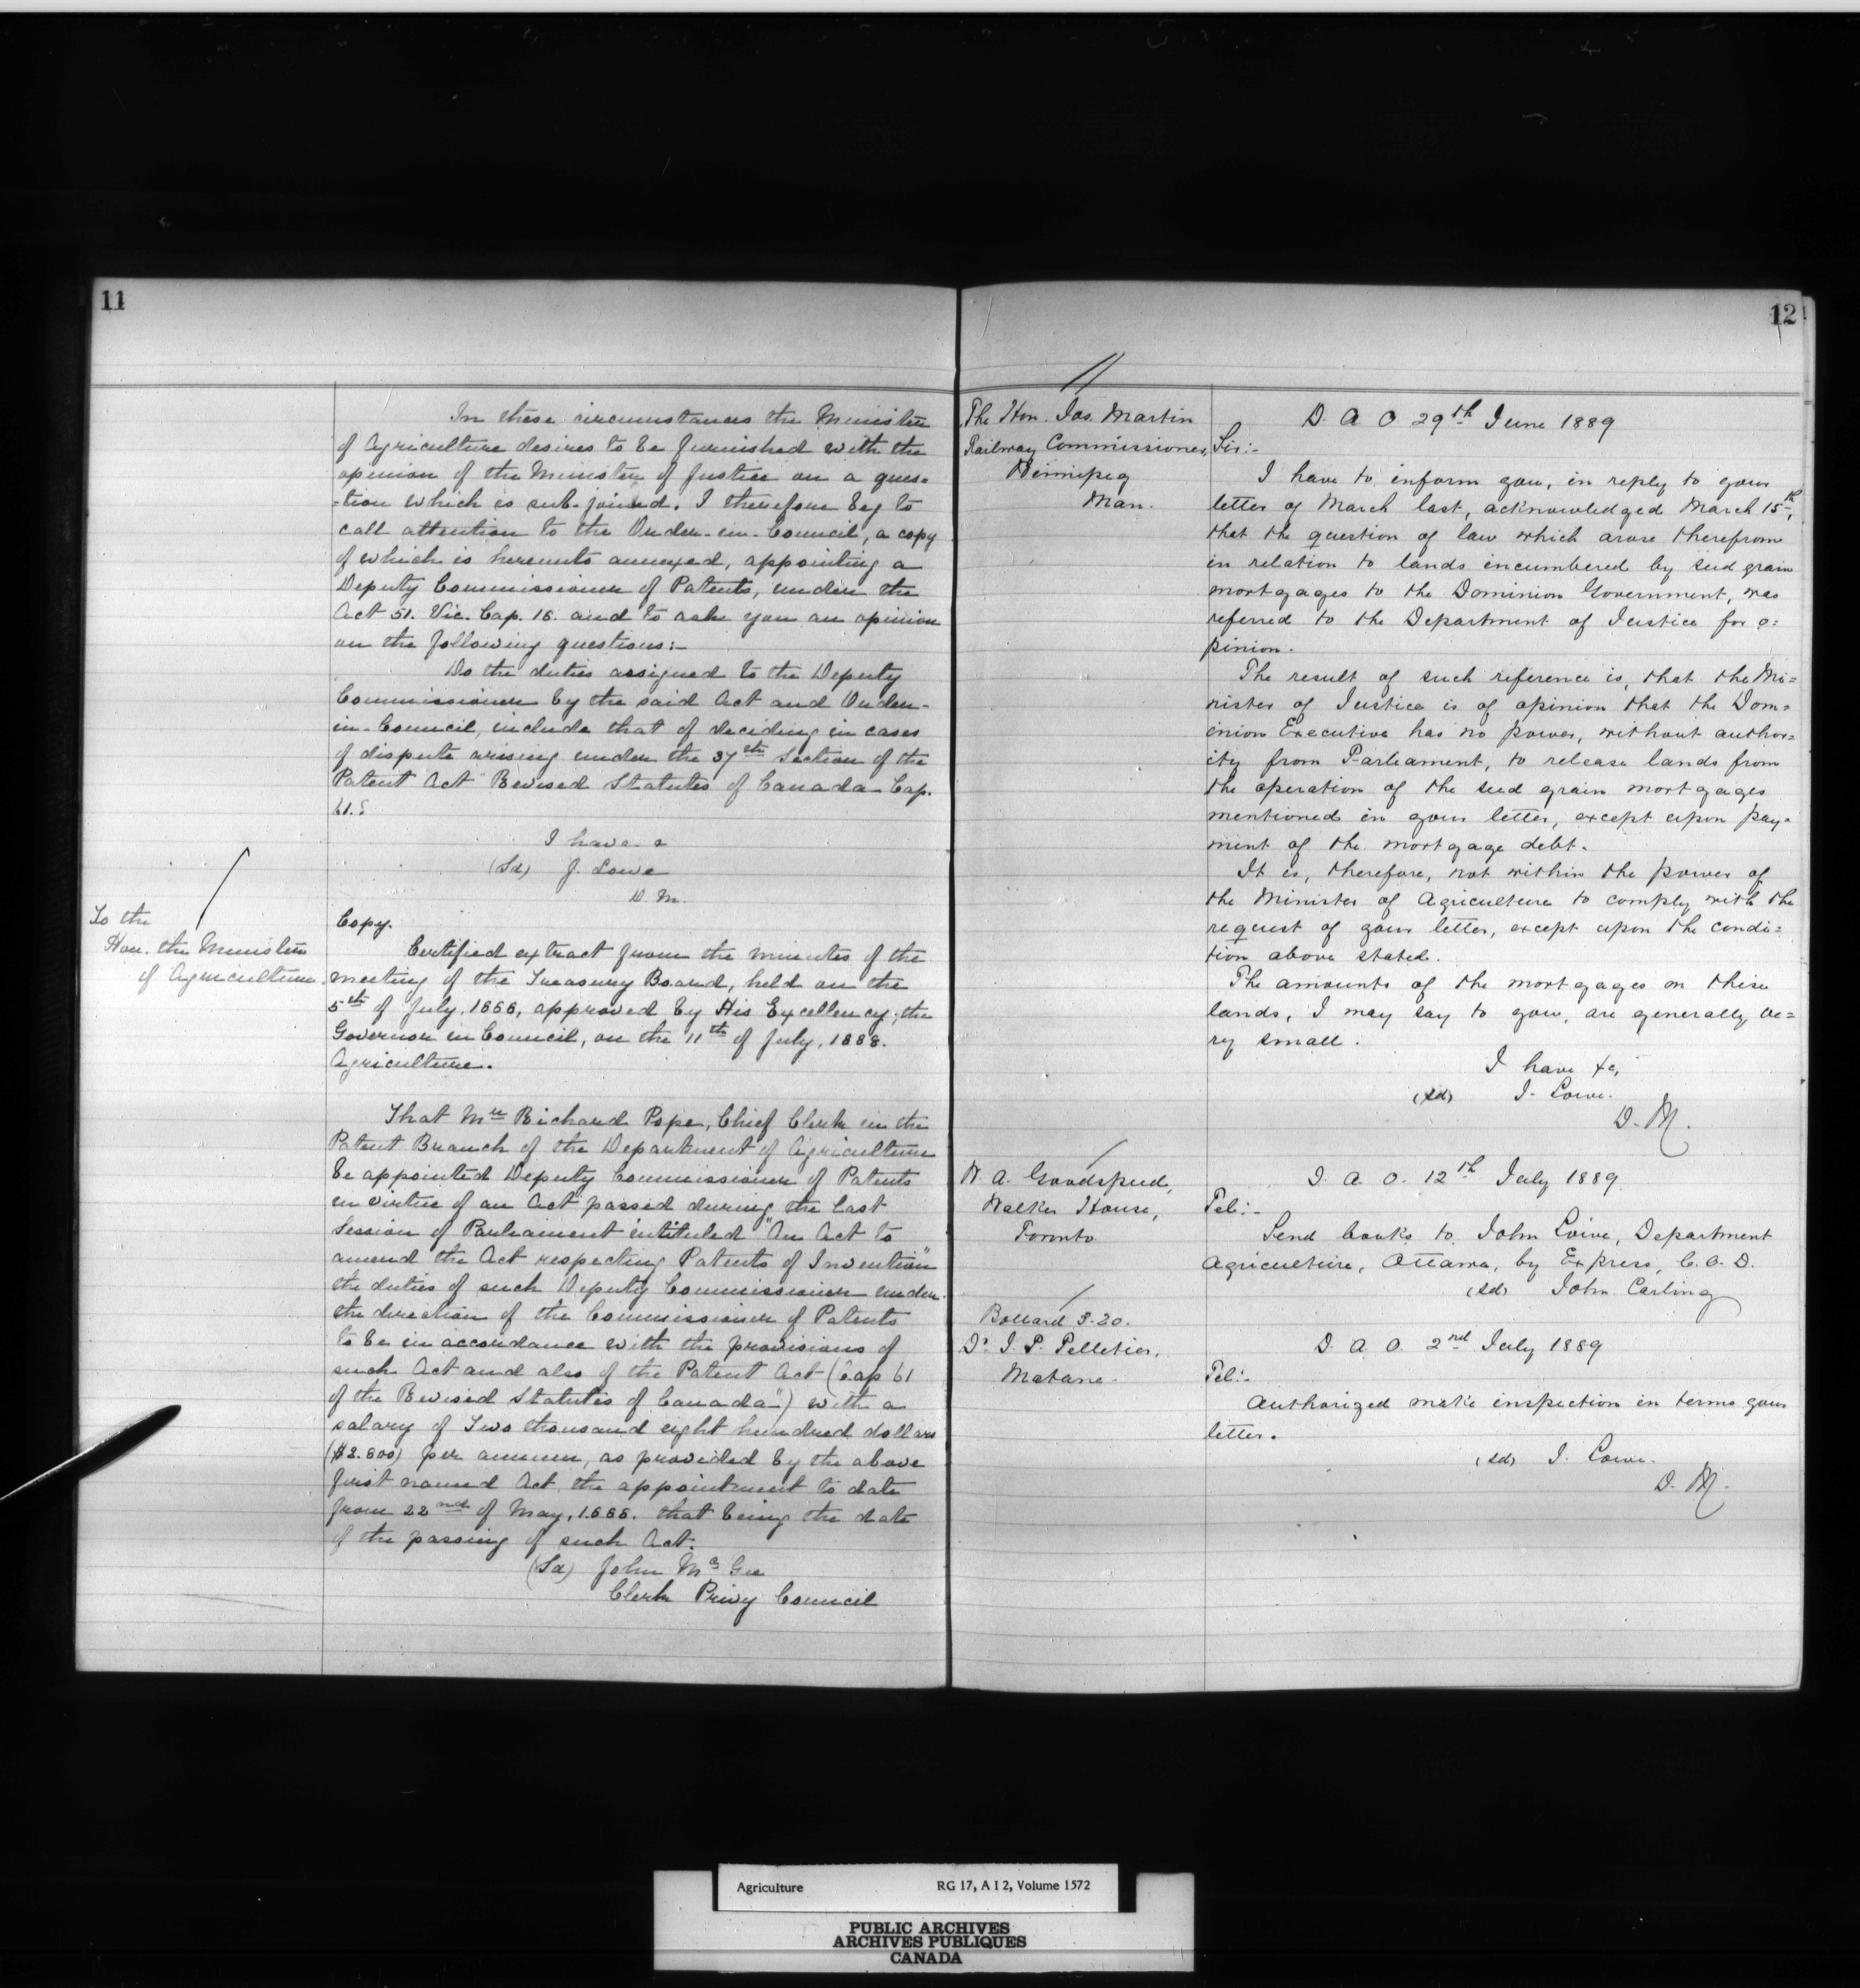 11
In these circumstances the Minister
of Agriculture desires to be furnished with the
opinion of the Minister of Justice on a ques=
=tion which is sub-joined. I therefore beg to
call attention to the Order-in-Council, a copy
of which is hereunto annexed, appointing a
Deputy Commissioner of Patents, under the
Act 51. Vic. Cap. 18. and to ask you an opinion
on the following questions:-
Do the duties assigned to the Deputy
Commissioner by the said Act and Order-
in-Council, include that of deciding in cases
of dispute arising under the 37th Section of the
Patent Act "Revised Statutes of Canada Cap.
61.?
I have &
(Sd) J. Lowe
D. M.
To the
Hon. the Minister
of Agriculture.
Copy.
Certified extract from the minutes of the
meeting of the Treasury Board, held on the
5th of July, 1888, approved by His Excellency, the
Governor in Council, on the 11th of July, 1888.
Agriculture.
That Mr Richard Pope, Chief Clerk in the
Patent Branch of the Department of Agriculture
be appointed Deputy Commissioner of Patents
in virtue of an Act passed during the last
Session of Parliament intituled "An Act to
amend the Act respecting Patents of Invention"
the duties of such Deputy Commissioner under
the direction of the Commissioner of Patents
to be in accordance with the provisions of
such Act and also of the Patent Act (Cap 61
of the Revised Statutes of Canada") with a
salary of Two thousand eight hundred dollars
($2.800) per annum, as provided by the above
first named Act the appointment to date
from 22nd of May, 1888. that being the date
of the passing of such Act.
(Sd) John McGee
Clerk Privy Council
12
The Hon. Jos. Martin
Railway Commissioner,
Winnipeg
Man.
D. A O 29th June 1889
Sir:-
I have to inform you, in reply to your
letter of March last, acknowledged March 15th,
that the question of law which arose therefrom
in relation to lands incumbered by seed grain
mortgages to the Dominion Government, was
referred to the Department of Justice for o=
pinion.
The result of such reference is, that the Mi=
nister of Justice is of opinion that the Dom=
inion Executive has no power, without author=
ity from Parliament, to release lands from
the operation of the seed grain mortgages
mentioned in your letter, except upon pay=
ment of the mortgage debt.
It is, therefore, not within the power of
the Minister of Agriculture to comply with the
request of your letter, except upon the condi=
tion above stated.
The amounts of the mortgages on these
lands, I may say to you, are generally ve=
ry small.
I have &c,
(sd) J. Lowe.
D. M.
W. A. Goodspeed,
Walker House,
Toronto
D. A. O. 12th July 1889
Tel:-
Send books to John Lowe, Department
Agriculture, Ottawa, by Express, C. O. D.
(sd) John Carling
3-20.
Dr J. P. Pelletier,
Matane.
D. A. O. 2nd July 1889
Tel:-
Authorized make inspection in terms your
letter.
(sd) J. Lowe.
D. M.
Agriculture RG 17, A I 2, Volume 1572
PUBLIC ARCHIVES
ARCHIVES PUBLIQUES
CANADA